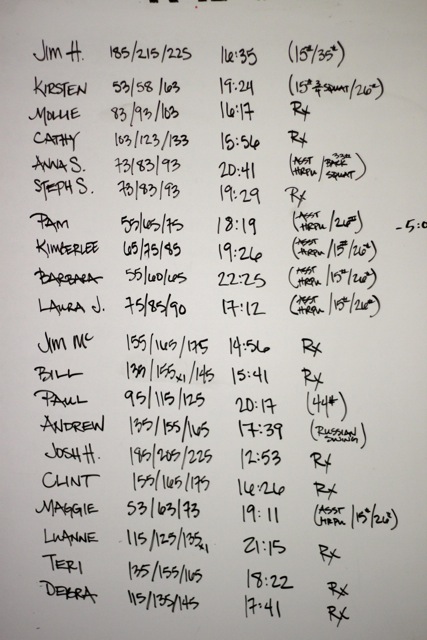 JIM H. 185/215/225 16:35 (15#/35#)
KIRSTEN 53/58/63 19:24 (15# 3/4 SQUAT/26#)
MOLLIE 83/93/103 16:17 Rx
CATHY 103/123/133 15:56 Rx
ANNA S. 73/83/93 20:41 (ASST HRPU/33# BACK SQUAT)
STEPH S. 73/83/93 19:29 Rx
PAM 55/65/75 18:19 (ASST HRPU/26#) -5:0
KIMBERLEE 65/75/85 19:26 (ASST HRPU/15#/26#)
BARBARA 55/60/65 22:25 (ASST HRPU/15#/26#)
LAURA J. 75/85/90 17:12 (ASST HRPU/15#/26#)
JIM Mc 155/165/175 14:56 Rx
BILL 135/155x1/145 15:41 Rx
PAUL 95/115/125 20:17 (44#)
ANDREW 135/155/165 17:39 (RUSSIAN SWING)
JOSH H. 195/205/225 12:53 Rx
CLINT 155/165/175 16:26 Rx
MAGGIE 53/63/73 19:11 (ASST HRPU/15#/26#)
LUANNE 115/125/135x1 21:15 Rx
TERI 135/155/165 18:22 Rx
DEBRA 115/135/145 17:41 Rx